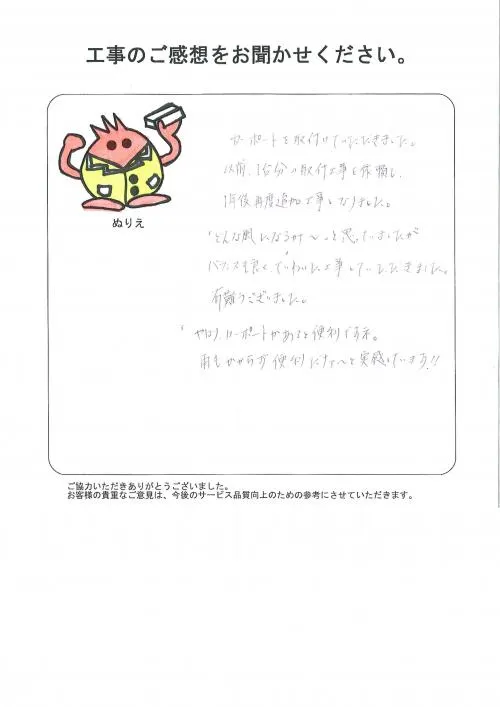 工事のご感想をお聞かせください。
カーポートを取付けていただきました。
以前、1台分の取付工事を依頼し、
1年後再度追加工事となりました。
ぬりえ
"どんな風になるか〜"と思っていましたが
バランスも良く、ていねいに工事していただきました。
有難うございました。
やはりカーポートがあると便利ですネ。
雨もかからず便利だナ〜と実感しています!!
ご協力いただきありがとうございました。
お客様の貴重なご意見は、今後のサービス品質向上のための参考にさせていただきます。